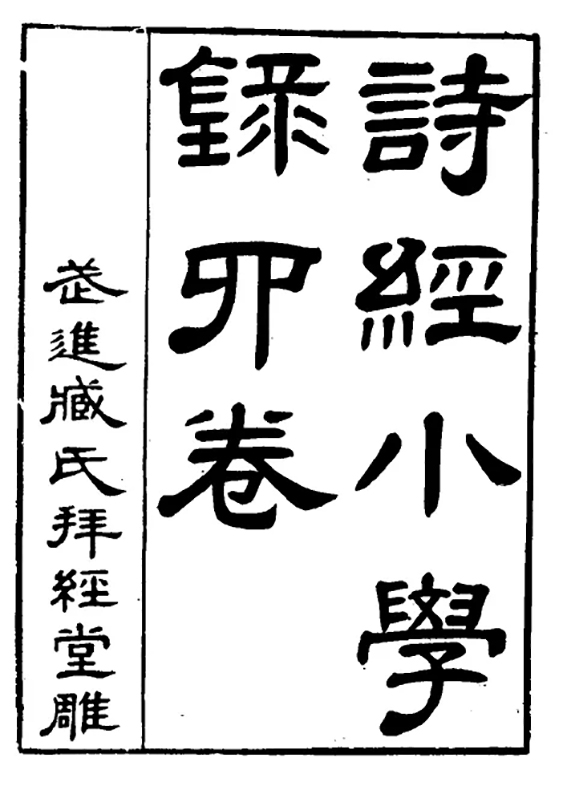 詩經小學
錄四卷
武進臧氏拜經堂雕